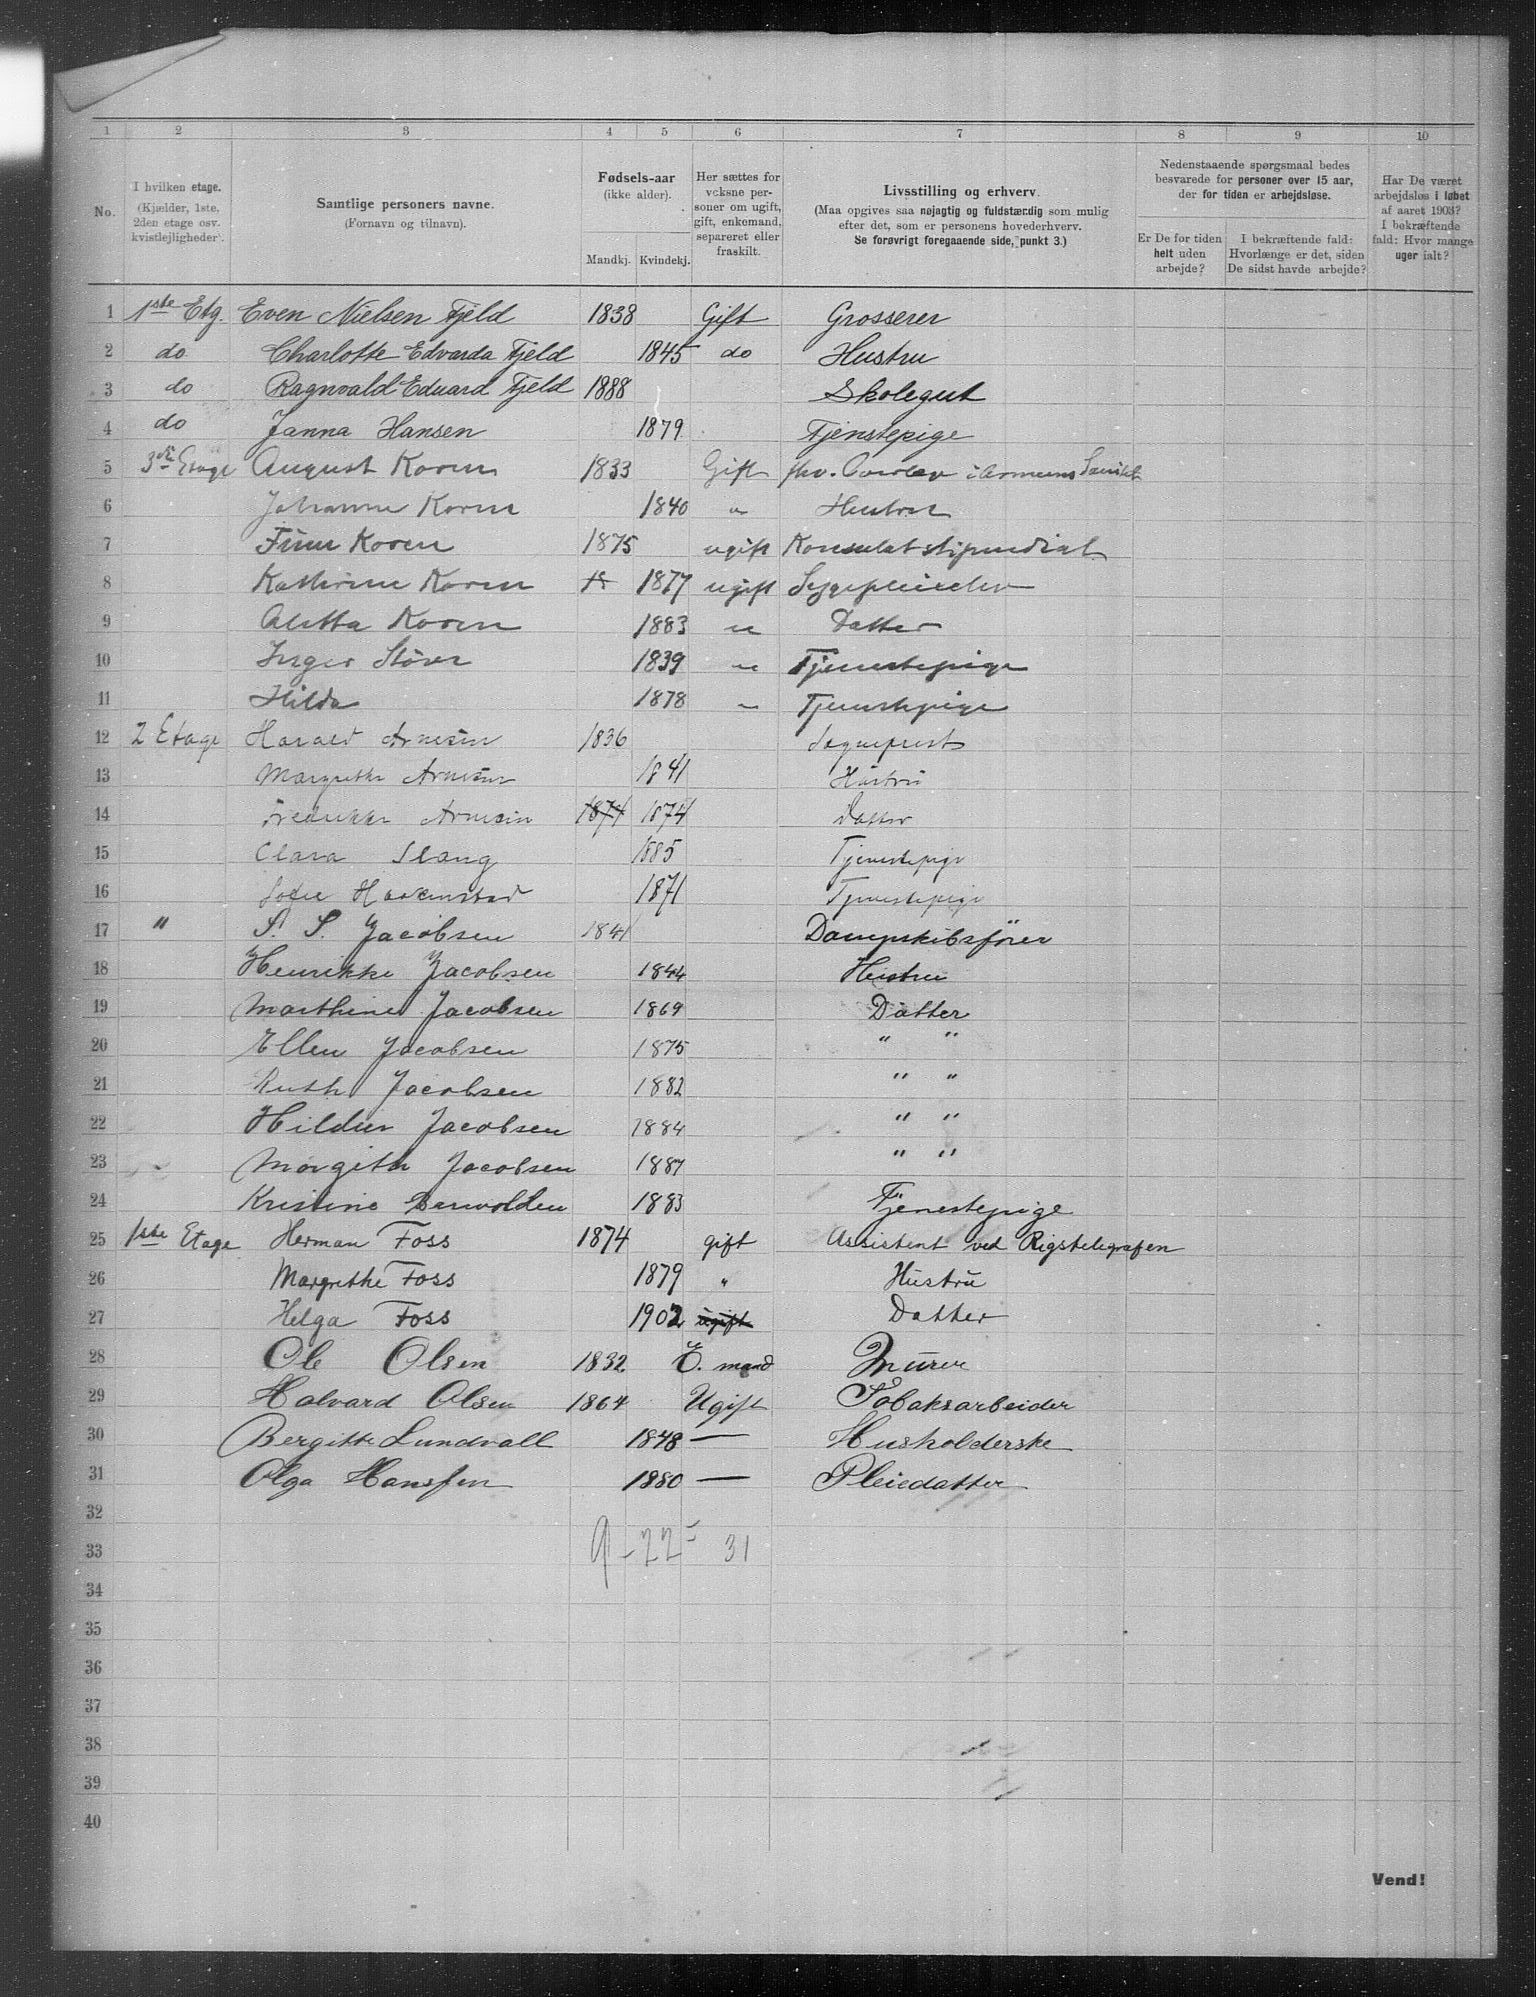 1 2 3 4 5 6 7 8 9 10
No.
I hvilken etage.
(Kjælder, 1ste,
2den etage osv.
kvistlejligheder).
Samtlige personers navne.
(Fornavn og tilnavn).
Fødsels-aar
(ikke alder).
Mandkj. Kvindekj.
Her sættes for
voksne per-
soner om ugift,
gift, enkemand,
separeret eller
fraskilt.
Livsstilling og erhverv.
(Maa opgives saa nøjagtig og fuldstændig som mulig
efter det, som er personens hovederhverv.
Se forøvrigt foregaaende side, punkt 3.)
Nedenstaaende spørgsmaal bedes
besvarede for personer over 15 aar,
der for tiden er arbejdsløse.
Er De for tiden
helt uden
arbejde?
I bekræftende fald:
Hvorlænge er det, siden
De sidst havde arbejde?
Har De været
arbejdsløs i løbet
af aaret 1903?
I bekræftende
fald: Hvor mange
uger ialt?
1 1ste Etg. Even Nielsen Fjeld 1838 Gift Grosserer
2 do Charlotte Edvarda Fjeld 1845 do Hustru
3 do Ragnvald Eduard Fjeld 1888 Skolegut
4 do Janna Hansen 1879 Tjenstepige
5 3die Etage August Koren 1833 Gift
6 Johanne Koren 1840 " Hustru
7 Finn Koren 1875 ugift Konsulatstipendiat
8 Kathrine Koren 18 1877 ugift Sygepleieelev
9 Aletta Koren 1883 " Datter
10 Inger Støren 1839 " Tjenestepige
11 Hilda 1878 " Tjenestepige
12 2 Etage Harald Arnesen 1836 Sogneprest
13 Margrethe Arnesen 1841 Hustru
14 Fredrikke Arnesen 1874 1874 Datter
15 Clara Slang 1885 Tjenestepige
16 Sofie 1871 Tjenestepige
17 " S. S. Jacobsen 1841 Dampskibsfører
18 Henrikke Jacobsen 1844 Hustru
19 Marthine Jacobsen 1869 Datter
20 Ellen Jacobsen 1875 " "
21 Ruth Jacobsen 1882 " "
22 Hildur Jacobsen 1884 " "
23 Margith Jacobsen 1887 " "
24 Kristine 1883 Tjenestepige
25 1ste Etage Herman Foss 1874 gift Assistent ved Rigstelegrafen
26 Margrethe Foss 1879 " Hustru
27 Helga Foss 1902 ugift Datter
28 Ole Olsen 1832 E. mand Murer
29 Halvard Olsen 1864 Ugift Tobaksarbeider
30 Bergitte Lundvall 1848 — Husholderske
31 Olga Hanssen 1880 — Pleiedatter
32
33 9 - 22 = 31
34
35
36
37
38
39
40
Vend!